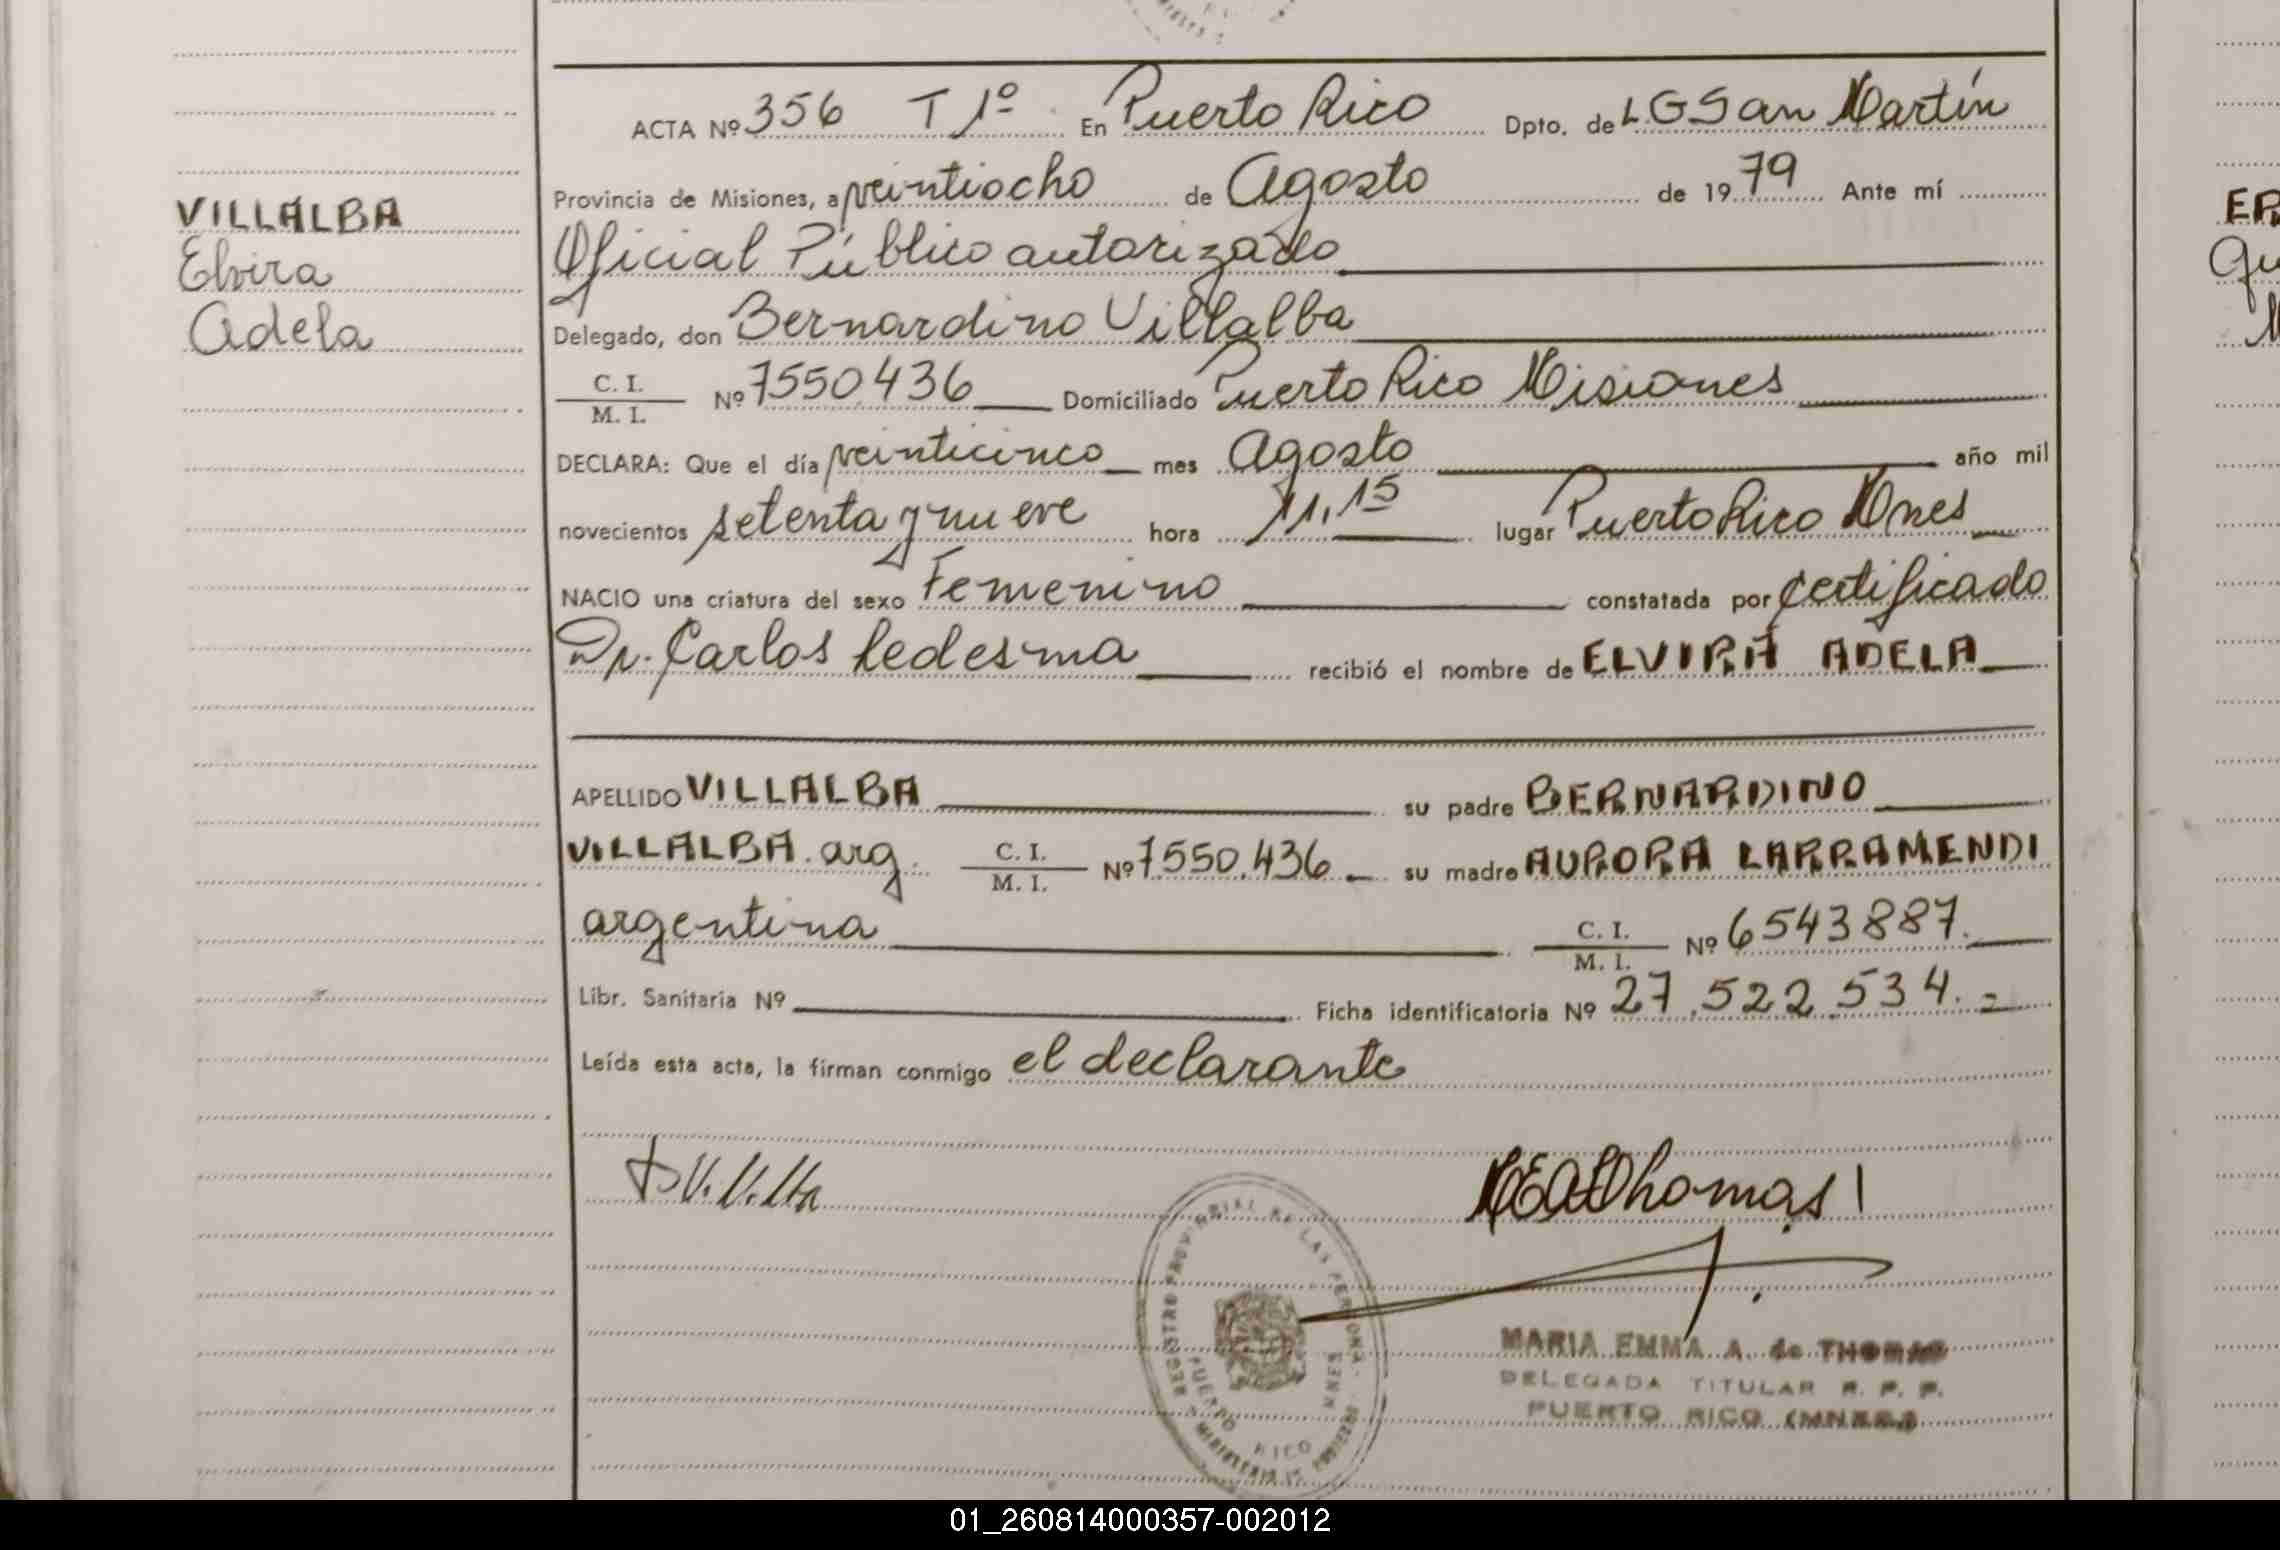 ACTA Nº 356 T 1º En Puerto Rico Dpto. de L G San Martín
Provincia de Misiones, a veintiocho de Agosto de 1979 Ante mí
VILLALBA
Elvira
Adela
Oficial Público autorizado
Delegado, don Bernardino Villalba
C. I.
M. I.
Nº 7550.436 Domiciliado Puerto Rico Misiones
DECLARA: Que el día veinticinco mes Agosto año mil
novecientos setenta y nueve hora 11,15 lugar Puerto Rico Mnes
NACIO una criatura del sexo Femenino constatada por certificado
Dr. Carlos Ledesma recibió el nombre de ELVIRA ADELA
APELLIDO VILLALBA su padre BERNARDINO
VILLALBA. arg. C. I. M. I. Nº 7.550.436 su madre AURORA LARRAMENDI
argentina C. I. M. I. Nº 6543887.
Libr. Sanitaria Nº Ficha identificatoria Nº 27.522.534.=
Leída esta acta, la firman conmigo el declarante
MEAThomas
REGISTRO PROVINCIAL DE LAS PERSONAS
PUERTO RICO MNES
MINISTERIO DE GOBIERNO
MARIA EMMA A. de THOMAS
DELEGADA TITULAR R. P. P.
PUERTO RICO (MNES.)
01_260814000357-002012